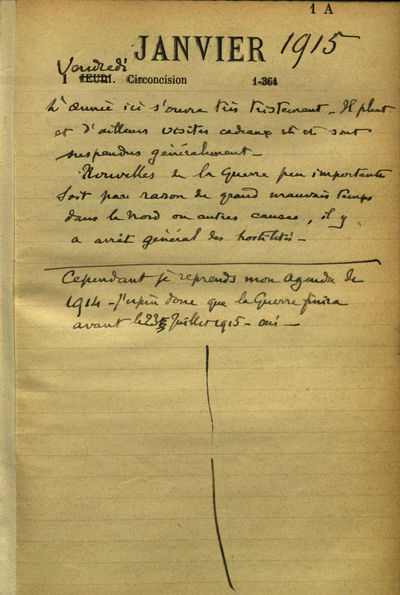 1 A
JANVIER 1915
Vendredi
1 JEUDI. Circoncision 1-364
L'année ici s'ouvre très tristement - Il pleut
et d'ailleurs visites cadeaux etc etc sont
suspendus généralement -
Nouvelles de la Guerre peu importantes
Soit par raison de grand mauvais temps
dans le Nord ou autres causes, il y
a arrêt général des hostilités -
Cependant je reprends mon agenda de
1914 - J'espère donc que la Guerre finira
avant le 23 Juillet 1915 -